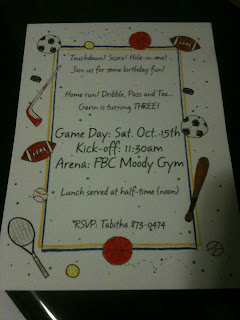 Touchdown! Score! Hole-in-one!
Join us for some birthday fun!
Home run! Dribble, Pass and Tee...
Gavin is turning THREE!
Game Day: Sat. Oct. 15th
Kick-off: 11:30am
Arena: FBC Moody Gym
Lunch served at half-time (noon)
*RSVP: Tabitha 873-0474